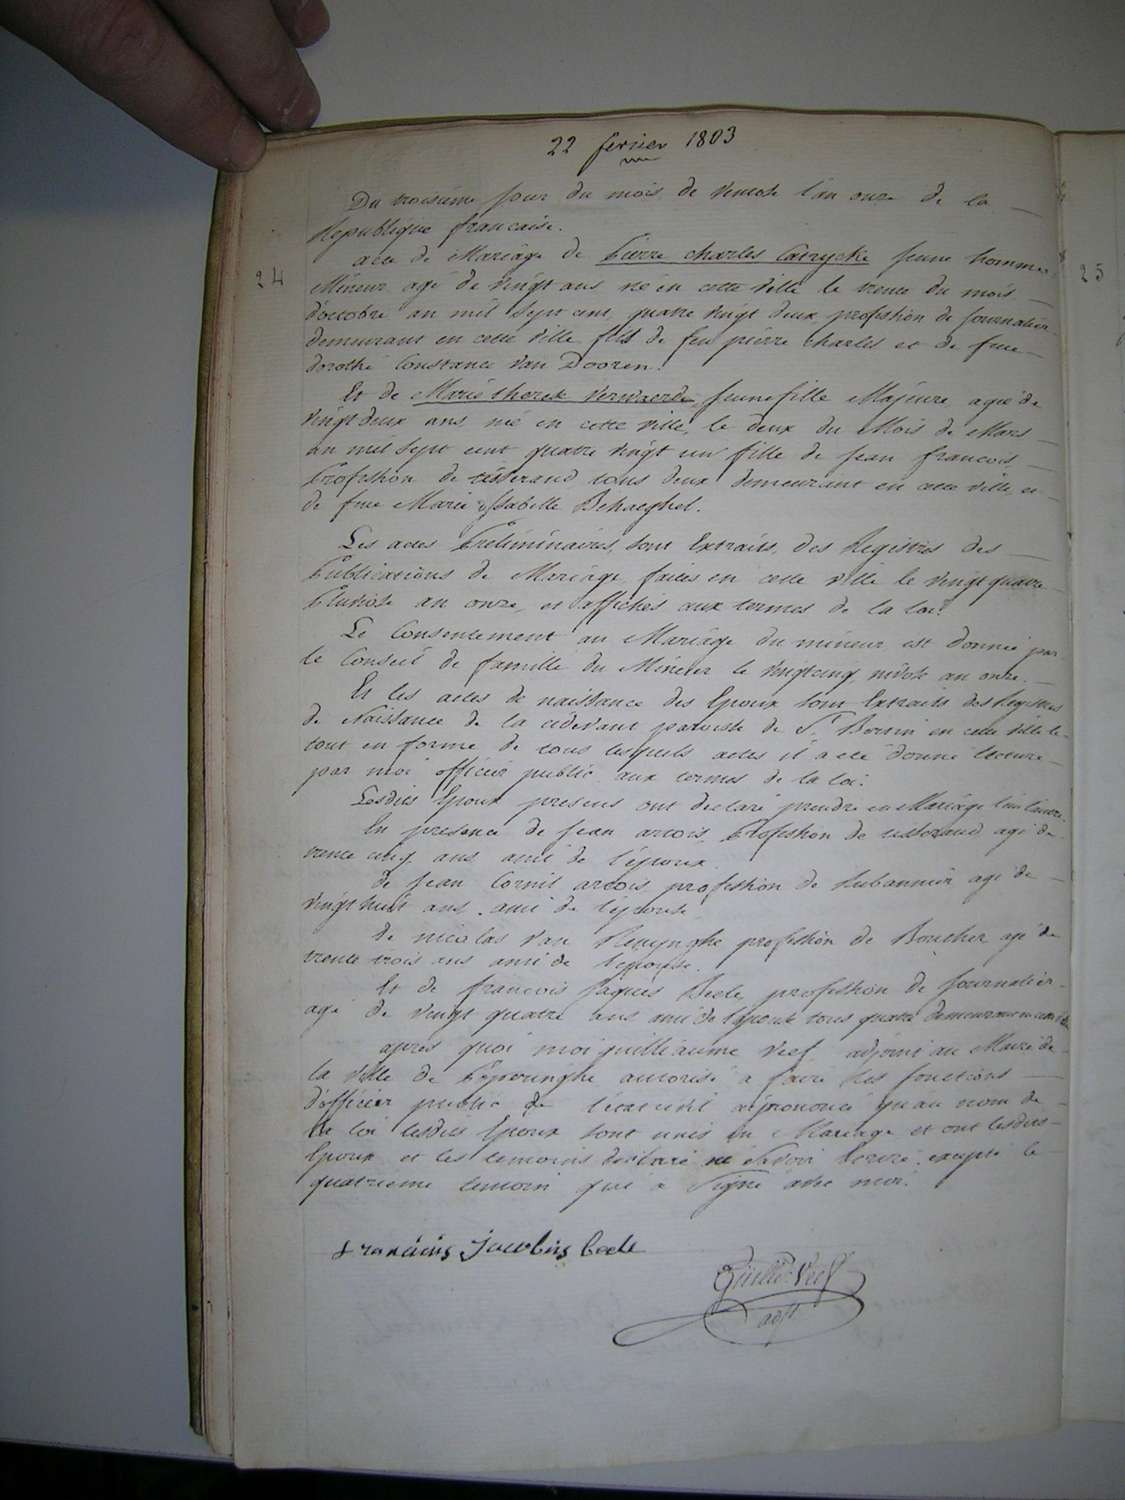 22 fevrier 1803
Du troisième jour du mois de Ventose l'an onze de la
Republique francaise.
24
25
acte de Mariage de Pierre Charles Catrycke jeune homme
Mineur agé de vingt ans né en cette ville le trente du mois
d'octobre an mil sept cent quatre vingt deux profession de journalier
demeurant en cette ville fils de feu pierre Charles et de feue
dorothé Constance Van Dooren.
Et de Marie therese Verwaerde, jeune fille Majeure agé de
vingt deux ans né en cette ville, le deux du Mois de Mars
an mil sept cent quatre vingt un fille de jean francois
Profession de tisserand tous deux demeurant en cette ville, et
de feue Marie Isabelle Behaeghel.
Les actes Preliminaires, sont Extraits, des Registres des
Publications de Mariage faites en cette ville le vingt quatre
Pluviose an onze, et affichés aux termes de la loi.
Le Consentement au Mariage du mineur est donnée par
le Conseil de famille du Mineur le vingt cinq nivose an onze.
Et les actes de naissance des Epoux sont Extraits des Registres
de Naissance de la cidevant paroisse de St Bertin en cette ville le
tout en forme de tous lesquels actes il a eté donné lecture
par moi officier public aux termes de la loi.
Lesdits Epoux presens ont declaré prendre en Mariage l'un l'autre.
En presence de jean artois, profession de tisserand agé de
trente cinq ans ami de l'époux.
de jean Cornil artois profession de Rubannier agé de
vingt huit ans ami de l'épouse
de nicolas Van Renynghe profession de Boucher agé de
trente trois ans ami de l'epouse.
Et de francois jaques Beele profession de journalier
agé de vingt quatre ans ami de l'épouse tous quatre demeurant en cette ville
apres quoi moi guilliaume Veef adjoint au Maire de
la ville de Poperinghe autorisé a faire les fonctions
d'officier public de l'etat civil ai prononcé qu'au nom de
la loi lesdits Epoux sont unis en Mariage et ont lesdits
Epoux et les temoins declaré ne Savoir Ecrire excepté le
quatrieme temoin qui a Signé avec moi.
franciscus jacobus beele
Guille Veef
adjt